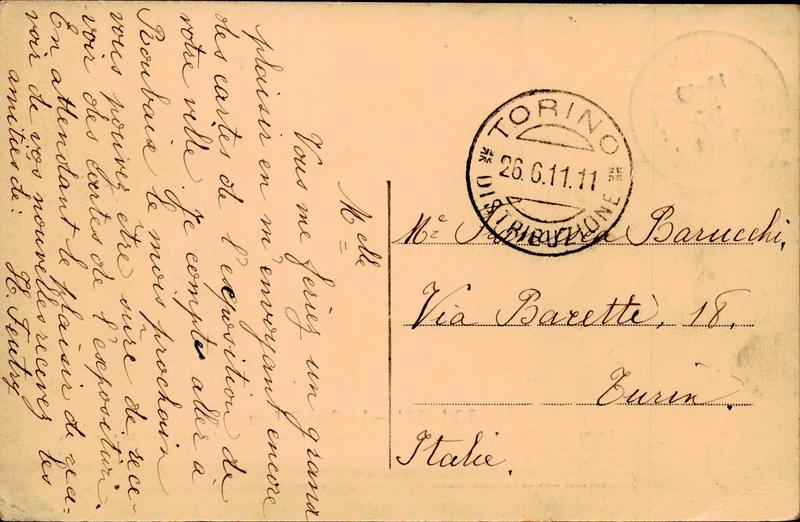 Mlle
Vous me feriez un grand
plaisir en m'envoyant encore
des cartes de l'exposition de
votre ville. Je compte aller à
Roubaix le mois prochain
vous pouvez être sûre de rece-
voir des cartes de l'exposition.
En attendant le plaisir de
voir de vos nouvelles recevez les
amitiés de:
H.
TORINO
26.6.11.11
DISTRIBUZIONE
Barucchi,
Via Baretti, 18.
Turin.
Italie.